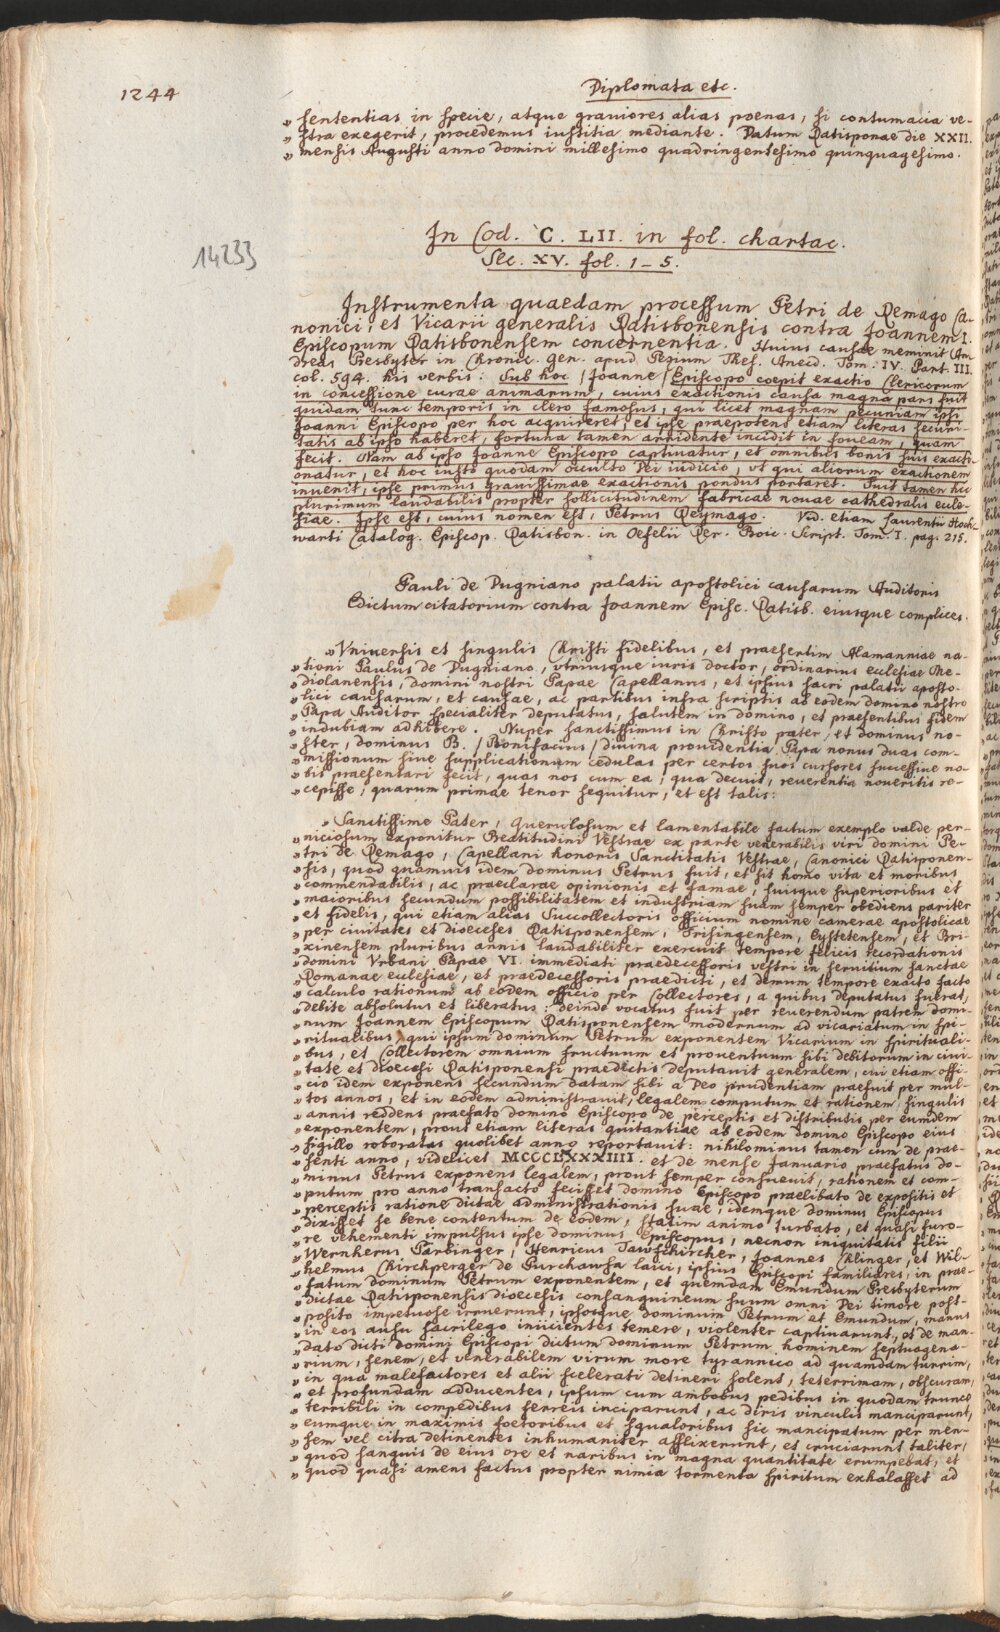 1244
Diplomata etc.
„ sententias in specie, atque graviores alias poenas, si contumacia ve-
„ stra exegerit, procedemus iustitia mediante. Datum Ratisponae die XXII.
„ mensis Augusti anno domini millesimo quadringentesimo quinquagesimo.
In Cod. C. LII. in fol. chartac.
Sec. XV. fol. 1-5.
14233
Instrumenta quaedam processum Petri de Remago Ca-
nonici, et Vicarii generalis Ratisbonensis contra Joannem I.
Episcopum Ratisbonensem concernentia. Huius causae meminit An
dreas Presbyter in Chronic. gen. apud Pezium Thes. Anecd. Tom. IV. Part. III.
col. 594. his verbis: Sub hoc /Joanne/ Episcopo coepit exactio Clericorum
in concessione curae animarum, cuius exactionis causa magna pars fuit
quidam tunc temporis in clero famosus, qui licet magnam pecuniam ipsi
Joanni Episcopo per hoc acquireret, et ipse praepotens etiam literas securi-
tatis ab ipso haberet, fortuna tamen arridente incidit in foueam, quam
fecit. Nam ab ipso Joanne Episcopo captiuatur, et omnibus bonis suis exacti-
onatur, et hoc iusto quodam occulto Dei iudicio, vt qui aliorum exactionem
inuenit, ipse primus grauissimae exactionis pondus portaret. Fuit tamen hic
plurimum laudabilis propter sollicitudinem fabricae nouae cathedralis eccle-
siae. Ipse est, cuius nomen est, Petrus Reymago. Vid. etiam Laurentii Hoch-
warti Catalog. Episcop. Ratisbon. in Oefelii Rer. Boic. Script. Tom. I. pag. 215.
Pauli de Dugniano palatii apostolici causarum Auditoris
Edictum citatorium contra Joannem Episc. Ratisb. eiusque complices.
„ Vniuersis et singulis Christi fidelibus, et praesertim Alamanniae na-
„ tioni Paulus de Dugniano, vtriusque iuris doctor, ordinarius ecclesiae Me-
„ diolanensis, domini nostri Papae Capellanus, et ipsius sacri palatii aposto-
„ lici causarum, et causae, ac partibus infra scriptis ab eodem domino nostro
„ Papa Auditor specialiter deputatus, salutem in domino, et praesentibus fidem
„ indubiam adhibere. Nuper sanctissimus in Christo pater, et dominus no-
„ ster, dominus B. /Bonifacius/ diuina prouidentia Papa nonus duas com-
„ missionum siue supplicationum cedulas per certos suos cursores successiue no-
„ bis praesentari fecit, quas nos cum ea, qua decuit, reuerentia noueritis re-
„ cepisse, quarum primae tenor sequitur, et est talis:
„ Sanctissime Pater, querulosum et lamentabile factum exemplo valde per-
„ niciosum exponitur Beatitudini Vestrae ex parte venerabilis viri domini Pe-
„ tri de Remago, Capellani honoris Sanctitatis Vestrae, Canonici Ratisponen-
„ sis, quod quamuis idem dominus Petrus fuit, et sit homo vita et moribus
„ commendabilis, ac praeclarae opinionis et famae, suisque superioribus et
„ maioribus secundum possibilitatem et industriam suam semper obediens pariter
„ et fidelis, qui etiam alias Succollectoris officium nomine camerae apostolicae
„ per ciuitates et dioeceses Ratisponensem, Frisingensem, Eystetensem, et Bri-
„ xinensem pluribus annis laudabiliter exercuit tempore felicis recordationis
„ domini Vrbani Papae VI. immediati praedecessoris vestri in seruitium sanctae
„ Romanae ecclesiae, et praedecessoris praedicti, et demum tempore exacto facto
„ calculo rationum ab eodem officio per Collectores, a quibus deputatus fuerat,
„ debite absolutus et liberatus; deinde vocatus fuit per reuerendum patrem domi-
„ num Joannem Episcopum Ratisponensem modernum ad vicariatum in spi-
„ ritualibus, qui ipsum dominum Petrum exponentem Vicarium in spirituali-
„ bus, et Collectorem omnium fructuum et prouentuum sibi debitorum in ciui-
„ tate et dioecesi Ratisponensi praedictis deputauit generalem, cui etiam offi-
„ cio idem exponens secundum datam sibi a Deo prudentiam praefuit per mul-
„ tos annos, et in eodem administrauit, legalem computum et rationem singulis
„ annis reddens praefato domino Episcopo de perceptis et distributis per eumdem
„ exponentem, prout etiam literas quitantiae ab eodem domino Episcopo eius
„ sigillo roboratas quolibet anno reportauit: nihilominus tamen cum de prae-
„ senti anno, videlicet MCCCLXXXIIII. et de mense Januario praefatus do-
„ minus Petrus exponens legalem, prout semper consueuit, rationem et com-
„ putum pro anno transacto fecisset domino Episcopo praelibato de expositis et
„ perceptis ratione dictae administrationis suae, idemque dominus Episcopus
„ dixisset se bene contentum de eodem, statim animo turbato, et quasi furo-
„ re vehementi impulsus ipse dominus Episcopus, necnon iniquitatis filii
„ Wernherus Parbinger, Henricus Tawfkircher, Joannes Chlinger, et Wil-
„ helmus Chirchperger de Purchawsa laici, ipsius Episcopi familiares, in prae-
„ fatum dominum Petrum exponentem, et quemdam Emundum Presbyterum
„ dictae Ratisponensis dioecesis consanguineum suum omni Dei timore post-
„ posito impetuose irruerunt, ipsosque dominum Petrum et Emundum, manus
„ in eos ausu sacrilego iniicientes temere, violenter captiuarunt, et de man-
„ dato dicti domini Episcopi dictum dominum Petrum hominem septuagena-
„ rium, senem, et venerabilem virum more tyrannico ad quamdam turrim,
„ in qua malefactores et alii scelerati detineri solent, teterrimam, obscuram,
„ et profundam adducentes, ipsum cum ambobus pedibus in quodam trunco
„ terribili in compedibus ferreis inciparunt, ac diris vinculis manciparunt,
„ eumque in maximis foetoribus et squaloribus sic mancipatum per men-
„ sem vel citra detinentes inhumaniter afflixerunt, et cruciarunt taliter,
„ quod sanguis de eius ore et naribus in magna quantitate erumpebat, et
„ quod quasi amens factus propter nimia tormenta spiritum exhalasset ad